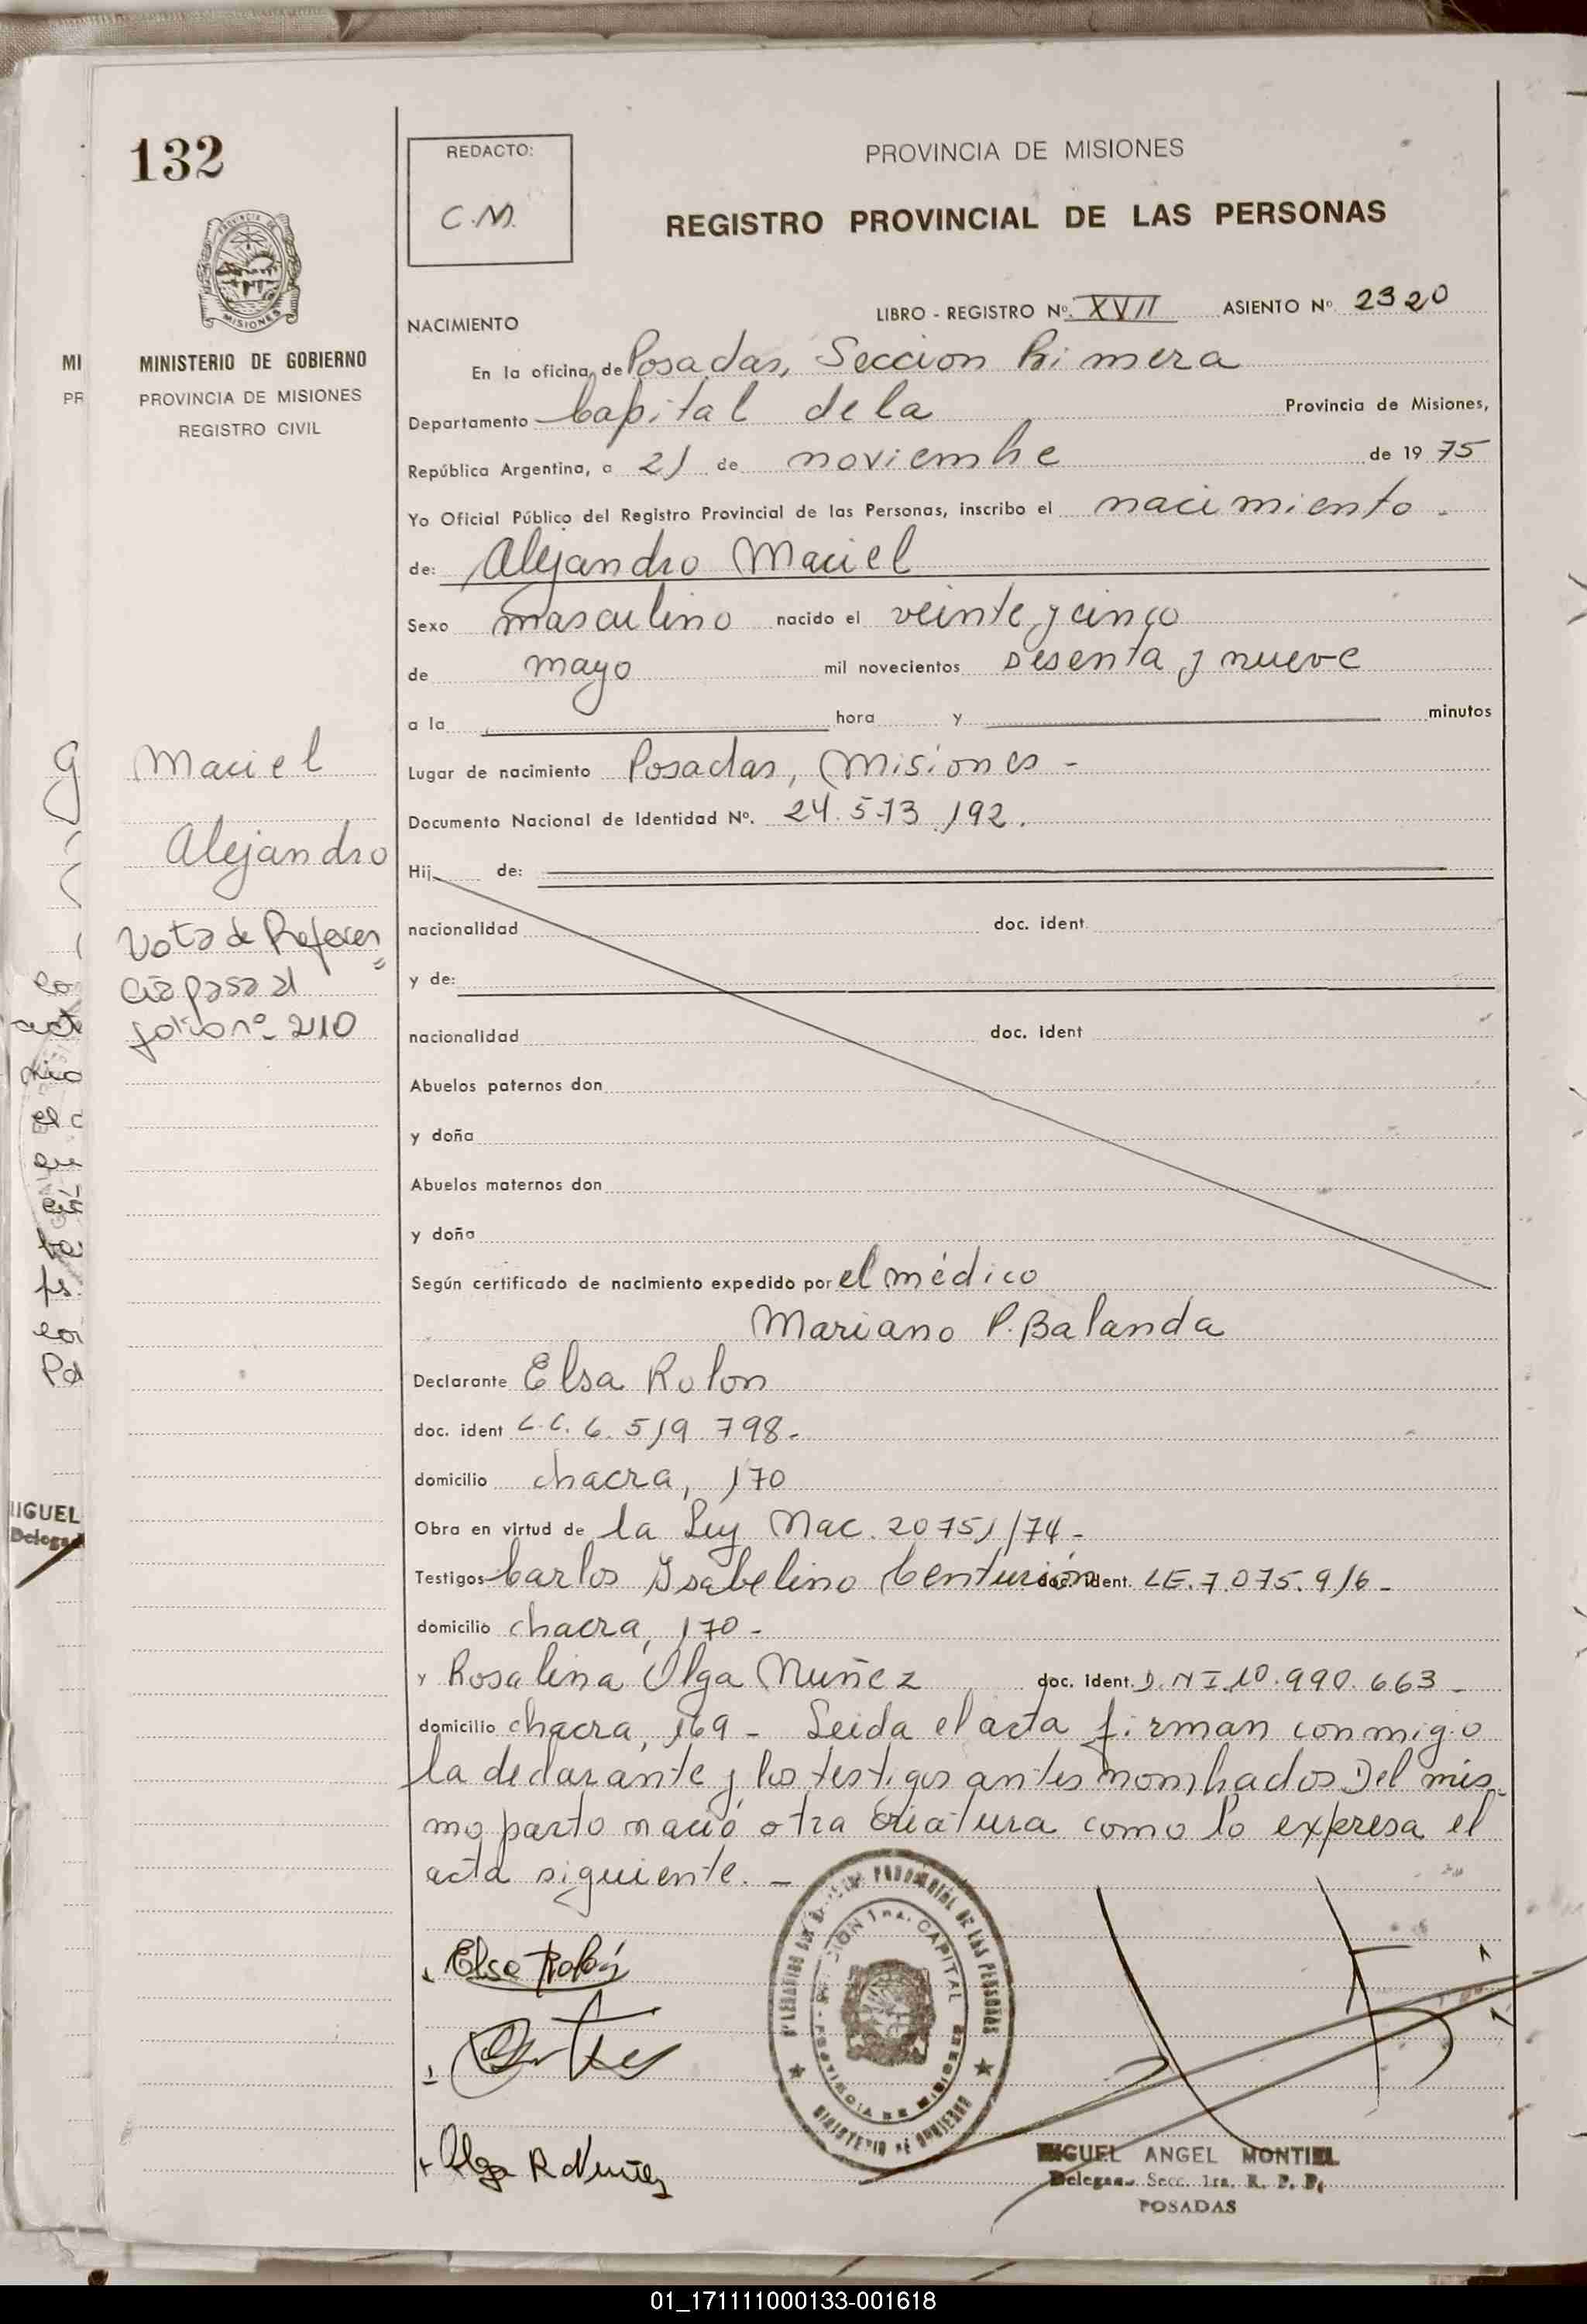 132
REDACTO:
C.M.
PROVINCIA DE MISIONES
REGISTRO PROVINCIAL DE LAS PERSONAS
MISIONES
MINISTERIO DE GOBIERNO
PROVINCIA DE MISIONES
REGISTRO CIVIL
LIBRO - REGISTRO Nº. XVII ASIENTO Nº. 2320
NACIMIENTO
En la oficina de Posadas, Seccion Primera
Departamento Capital de la Provincia de Misiones,
República Argentina, a 21 de noviembre de 1975
Yo Oficial Público del Registro Provincial de las Personas, inscribo el nacimiento.
de: Alejandro Maciel
Sexo masculino nacido el veinte y cinco
de mayo mil novecientos sesenta y nueve
a la hora y minutos
Lugar de nacimiento Posadas, Misiones -
Documento Nacional de Identidad Nº. 24.573.192.
Hij de:
nacionalidad doc. ident
y de:
nacionalidad doc. ident
Abuelos paternos don
y doña
Abuelos maternos don
y doña
Según certificado de nacimiento expedido por el médico
Mariano P. Balanda
Declarante Elsa Rolon
doc. ident L.C. 6.519.798-
domicilio chacra, 170
Obra en virtud de la Ley Nac. 20751/74-
Testigos Carlos Ysabelino Centurión doc. ident. LE. 7.075.916-
domicilio chacra, 170-
y Rosalina Olga Nuñez doc. ident. D.N.I. 10.990.663-
domicilio chacra, 169- Leida el acta firman conmigo
la declarante y los testigos antes nombrados Del mis
mo parto nació otra criatura como lo expresa el
acta siguiente. -
Maciel
Alejandro
Nota de Referen=
cia pasa al
folio nº 210
Elsa Rolón
Olga R Nuñez
SECCION 1ra. CAPITAL
PROVINCIAL DE LAS PERSONAS
PROVINCIA DE MISIONES
MINISTERIO DE GOBIERNO
MIGUEL ANGEL MONTIEL
Delegado Secc. 1ra. R. P. P.
POSADAS
MI
PR
IIGUEL
Delegad
01_171111000133-001618